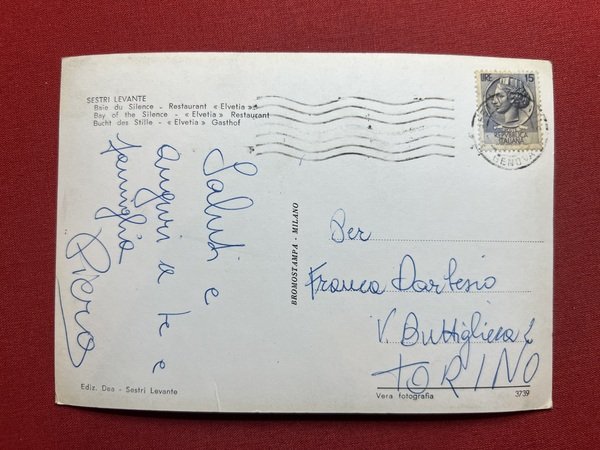 SESTRI LEVANTE
Baie du Silence - Restaurant « Elvetia »
Bay of the Silence - « Elvetia » Restaurant
Bucht des Stille - « Elvetia » Gasthof
Saluti e
auguri a te e
famiglia
Piero
BROMOSTAMPA - MILANO
LIRE 15
REPUBBLICA
ITALIANA
GENOVA
Per
Franca
V. Buttigliera 2
TORINO
Ediz. Dea - Sestri Levante
Vera fotografia
3739